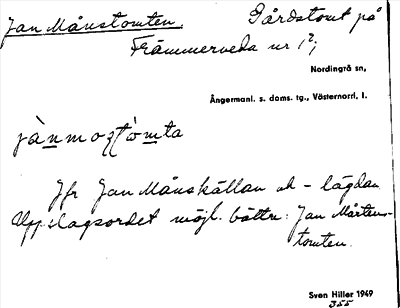 Jan Månstomten. Gårdstomt på
Främmerveda nr 1?,
Nordingrå sn,
Ångermanl. s. doms. tg., Västernorrl. l.
Jfr Jan Månskällan ok -lägdan
Uppslagsordet möjl. bättre: Jan Mårtens-
tomten.
Sven Hiller 1949
355